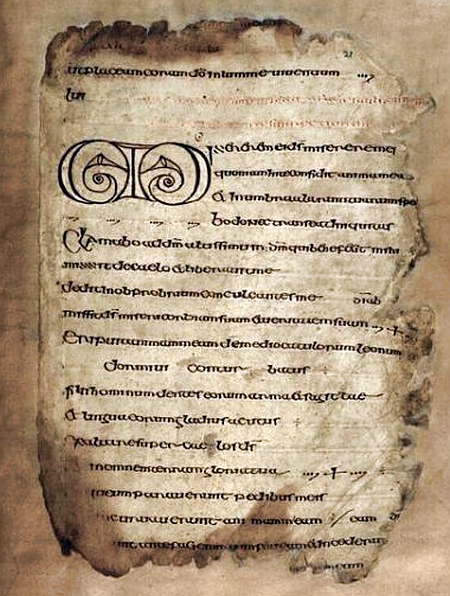 ut placeam coram dō in lumine uiuentium
lui
MISERERE mei ds miserere mei
quoniam in te confidit anima mea
& in umbra alarum tuarum spe
bo donec transeat iniquitas
Clamabo ad dm altissimum dm qui benefecit mihi
missit de caelo & liberauit me
dedit in obprobrium conculcantes me
missit ds misericordiam suam & ueritatem suam
Eripuit animam meam de medio catulorum leonum
dormiui conturbatus
filii hominum dentes eorum arma & sagittae
& lingua eorum gladius acutus
exaltare super caelos ds
in omnem terram gloria tua
parauerunt pedibus meis
incuruauerunt animam meam
ante faciem meam foueam & inciderunt